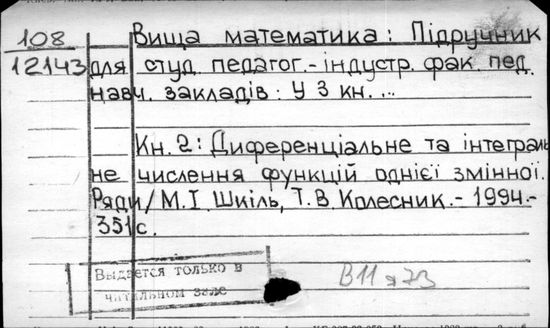 108
12143
Вища математика: Підручник
для студ. педагог.-індустр. фак. пед.
навч. закладів: У 3 кн. ...
Кн. 2: Диференціальне та інтеграль-
не числення функцій однієї змінної.
Ряди/ М.І. Шкіль, Т.В. Колесник.- 1994.-
351с.
Выдается только в
читальном зале
В11я73